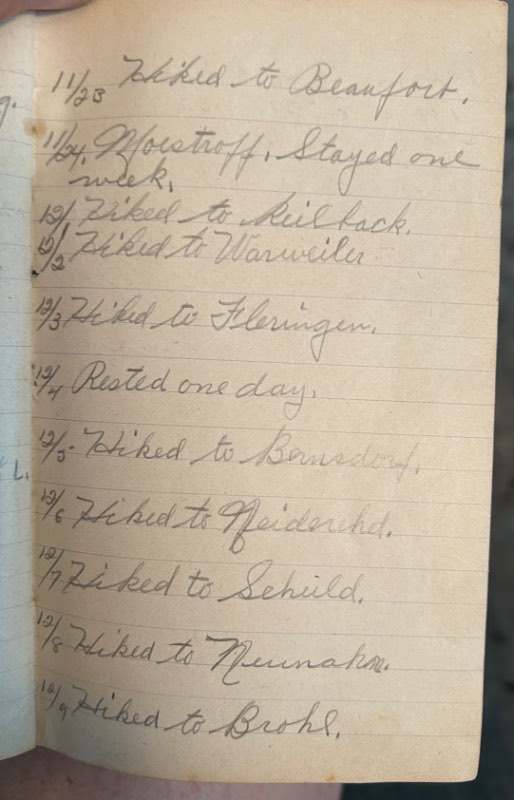 11/23 Hiked to Beaufort.
11/24. Moestroff. Stayed one
week.
12/1 Hiked to Meilback.
12/2 Hiked to Warweiler
12/3 Hiked to Fleringen.
12/4 Rested one day.
12/5 Hiked to Bernsdorf.
12/6 Hiked to Neiderehd.
12/7 Hiked to Scheild.
12/8 Hiked to Neunahm.
12/9 Hiked to Brohl.